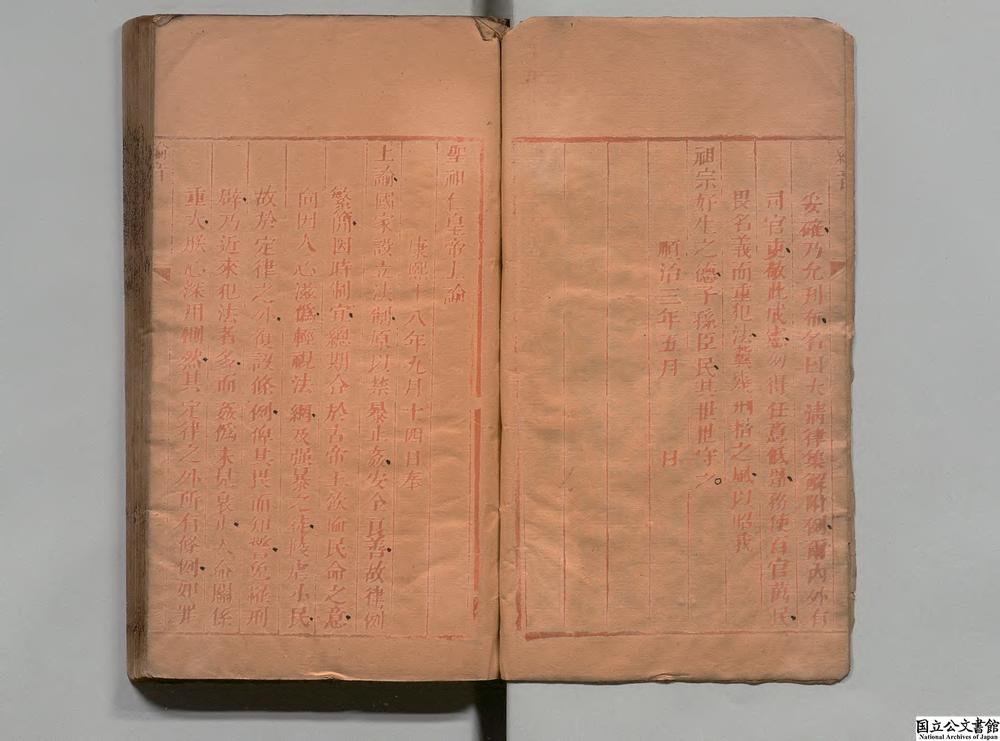 妥確乃允刊布名曰大清律集解附例爾內外有
司官吏敬此成憲勿得任意低昂務使百官萬民
畏名義而重犯法冀幾刑措之風以昭我
祖宗好生之德子孫臣民其世世守之
順治三年五月 日
聖祖仁皇帝上諭
康熙十八年九月十四日奉
上諭國家設立法制原以禁暴止姦安全良善故律例
繁簡因時制宜總期合於古帝王欽恤民命之意
向因人心滋僞輕視法網及強暴之徒陵虐小民
故於定律之外復設條例俾其畏而知警免罹刑
辟乃近來犯法者多而姦僞未見衰止人命關係
重大朕心深用惻然其定律之外所有條例如罪
国立公文書館
National Archives of Japan